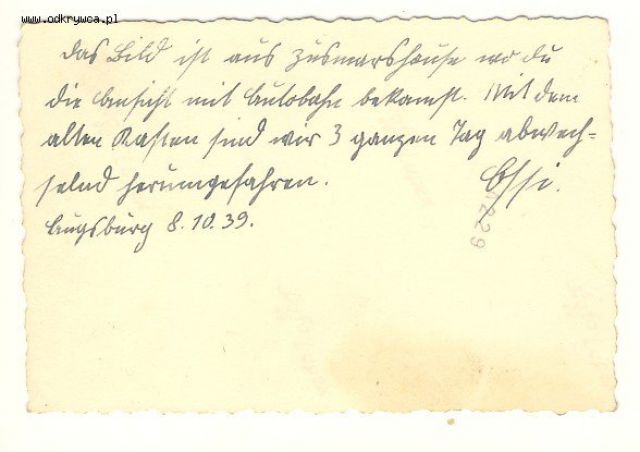 www.odkrywca.pl
Das Bild ist aus Zusmarshause wo du
die Ansicht mit Autobahn bekamst. Mit dem
alten Kasten sind wir 3 ganzen Tag abwech-
selnd herumgefahren. Ossi.
Augsburg 8.10.39.
1229